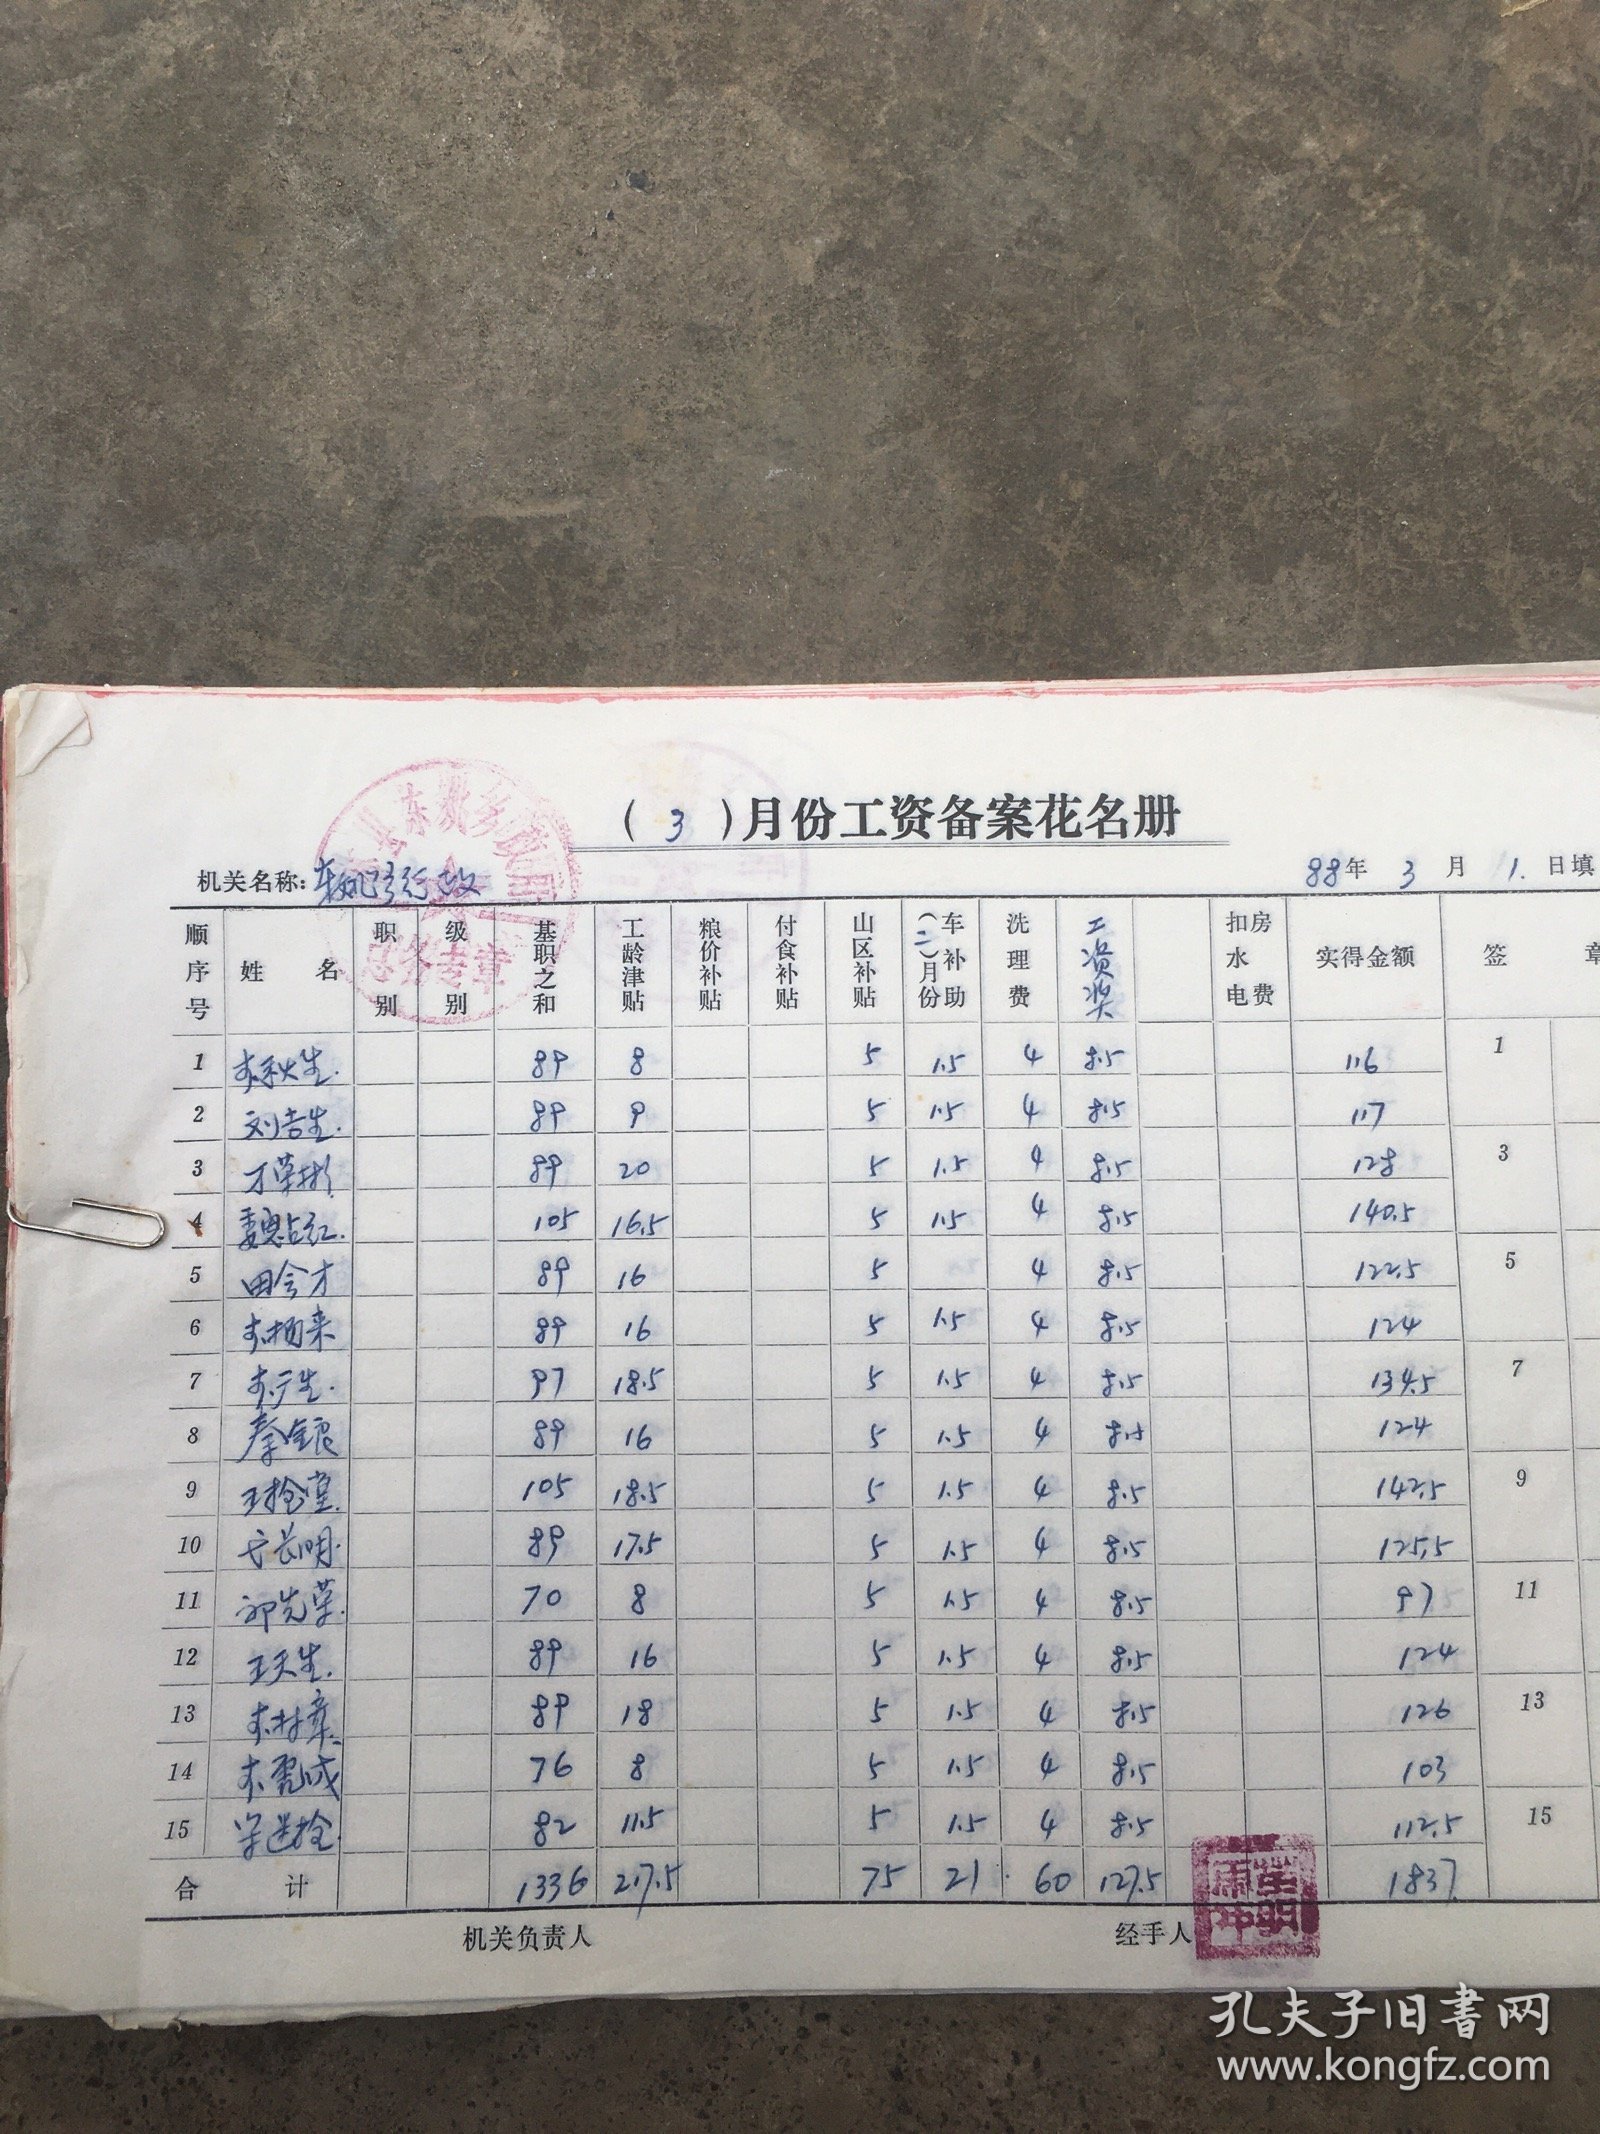 (3)月份工资备案花名册
机关名称: 东姚 行政
88年 3 月 1. 日填
顺序号 姓名 职别 级别 基职之和 工龄津贴 粮价补贴 付食补贴 山区补贴 (二)月份车补助 洗理费 工资奖 扣房水电费 实得金额 签章
1 秋生. 89 8 5 1.5 4 8.5 116 1
2 刘吉生. 89 9 5 1.5 4 8.5 117
3 荣彬 89 20 5 1.5 4 8.5 128 3
4 魏占红. 105 16.5 5 1.5 4 8.5 140.5
5 田令才 89 16 5 4 8.5 122.5 5
6 来 89 16 5 1.5 4 8.5 124
7 广生. 97 18.5 5 1.5 4 8.5 134.5 7
8 秦银 89 16 5 1.5 4 8.5 124
9 王拴堂. 105 18.5 5 1.5 4 8.5 142.5 9
10 长明. 89 17.5 5 1.5 4 8.5 125.5
11 先荣. 70 8 5 1.5 4 8.5 97 11
12 王天生. 89 16 5 1.5 4 8.5 124
13 章. 89 18 5 1.5 4 8.5 126 13
14 成 76 8 5 1.5 4 8.5 103
15 拴. 82 11.5 5 1.5 4 8.5 112.5 15
合计 1336 217.5 75 21. 60 127.5 1837.
机关负责人 经手人
孔夫子旧书网
www.kongfz.com